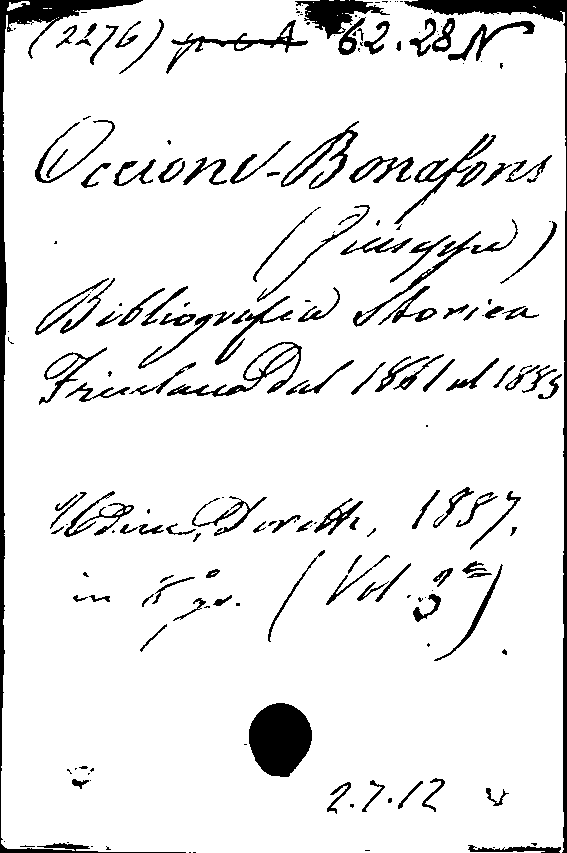 (2276) 62.28 N.
Occioni-Bonafons
(Giuseppe)
Bibliografia Storica
Friulana Dal 1861 al 1885
Udine, Doretti, 1887.
in 8° gr. (Vol. 3°)
2.7.12